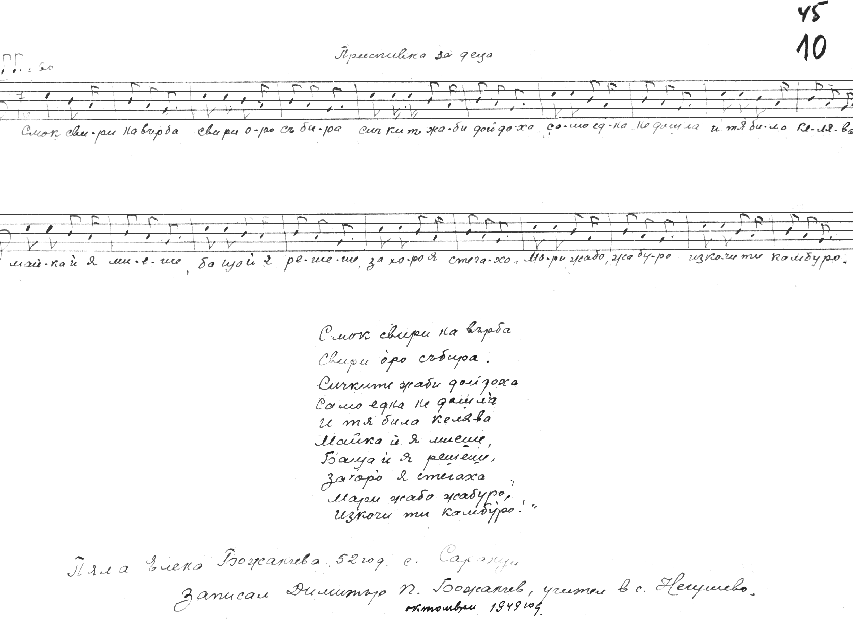 45
10
Приспивка за деца
Смок сви-ри на върба свири о-ро съ би-ра сичките жа-би дойдо-ха са-мо ед-на не дошла и тя би-ла ке-ля-ва
май-ка ѝ я ми-е-ше, ба ща ѝ я ре-ше-ше, за хо-ро я стега-ха. Ма-ри жабо, жа бу-ро изкочи ти камбуро.
Смок свири на върба
Свири оро събира.
Сичките жаби дойдоха
Само една не дошла
и тя била келява
Майка ѝ я миеше,
Баща ѝ я решеше,
за оро я стегаха
Мари жабо жабуро,
Изкочи ти камбуро!"
Пяла Елека Божанчева, 52 год. с.
Записал Димитър П. Божанчев, учител в с. Негушево.
октомври 1949 год.